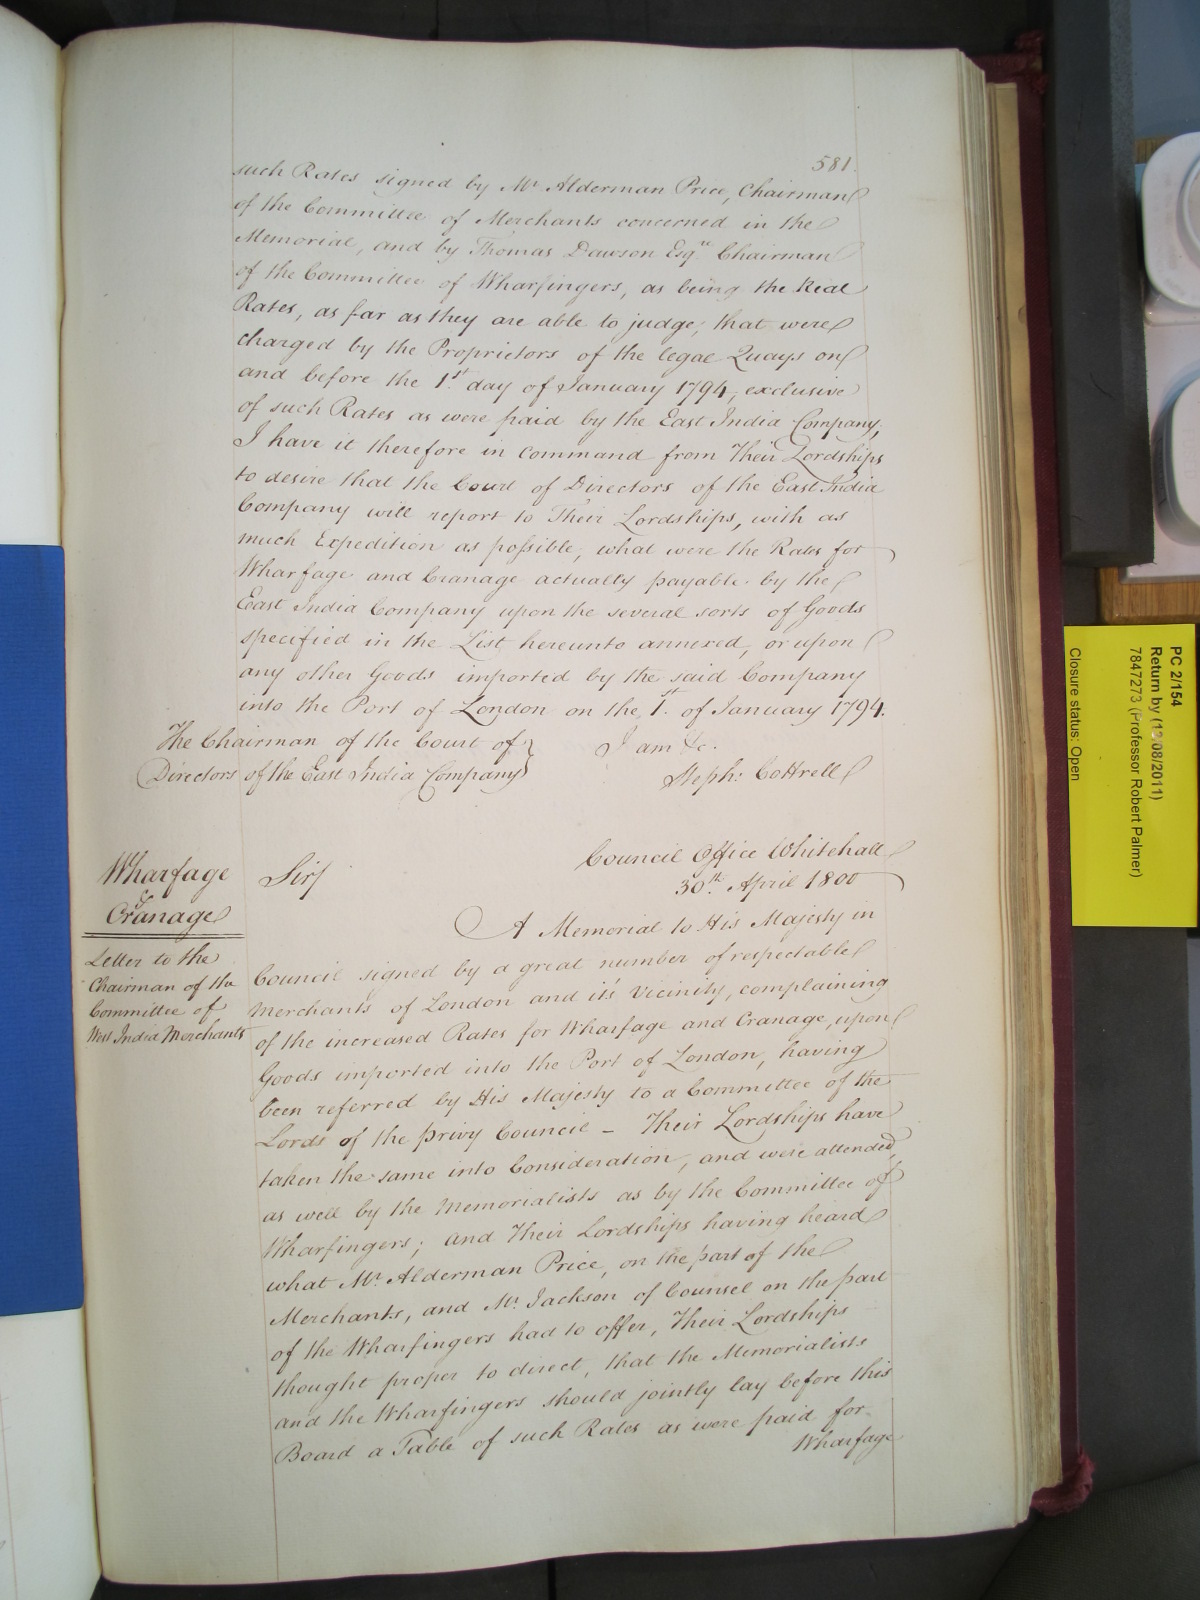 581.
such Rates signed by Mr Alderman Price, Chairman
of the Committee of Merchants concerned in the
Memorial, and by Thomas Dawson Esqre Chairman
of the Committee of Wharfingers, as being the Real
Rates, as far as they are able to judge, that were
charged by the Proprietors of the legal Quays on
and before the 1st day of January 1794, exclusive
of such Rates as were paid by the East India Company,
I have it therefore in Command from Their Lordships
to desire that the Court of Directors of the East India
Company will report to Their Lordships, with as
much Expedition as possible, what were the Rates for
Wharfage and Cranage actually payable by the
East India Company upon the several sorts of Goods
specified in the List hereunto annexed, or upon
any other Goods imported by the said Company
into the Port of London on the 1st of January 1794.
The Chairman of the Court of } I am &c.
Directors of the East India Company } Steph: Cottrell
Wharfage
&
Cranage
Letter to the
Chairman of the
Committee of
West India Merchants
Council Office Whitehall
30th April 1800
Sir/
A Memorial to His Majesty in
Council signed by a great number of respectable
Merchants of London and it's Vicinity, complaining
of the increased Rates for Wharfage and Cranage, upon
Goods imported into the Port of London, having
been referred by His Majesty to a Committee of the
Lords of the Privy Council - Their Lordships have
taken the same into Consideration, and were attended,
as well by the Memorialists as by the Committee of
Wharfingers; and Their Lordships having heard
what Mr Alderman Price, on the part of the
Merchants, and Mr Jackson of Counsel on the part
of the Wharfingers had to offer, Their Lordships
thought proper to direct, that the Memorialists
and the Wharfingers should jointly lay before this
Board a Table of such Rates as were paid for
Wharfage
PC 2/154
Return by (12/08/2011)
7847273 (Professor Robert Palmer)
Closure status: Open